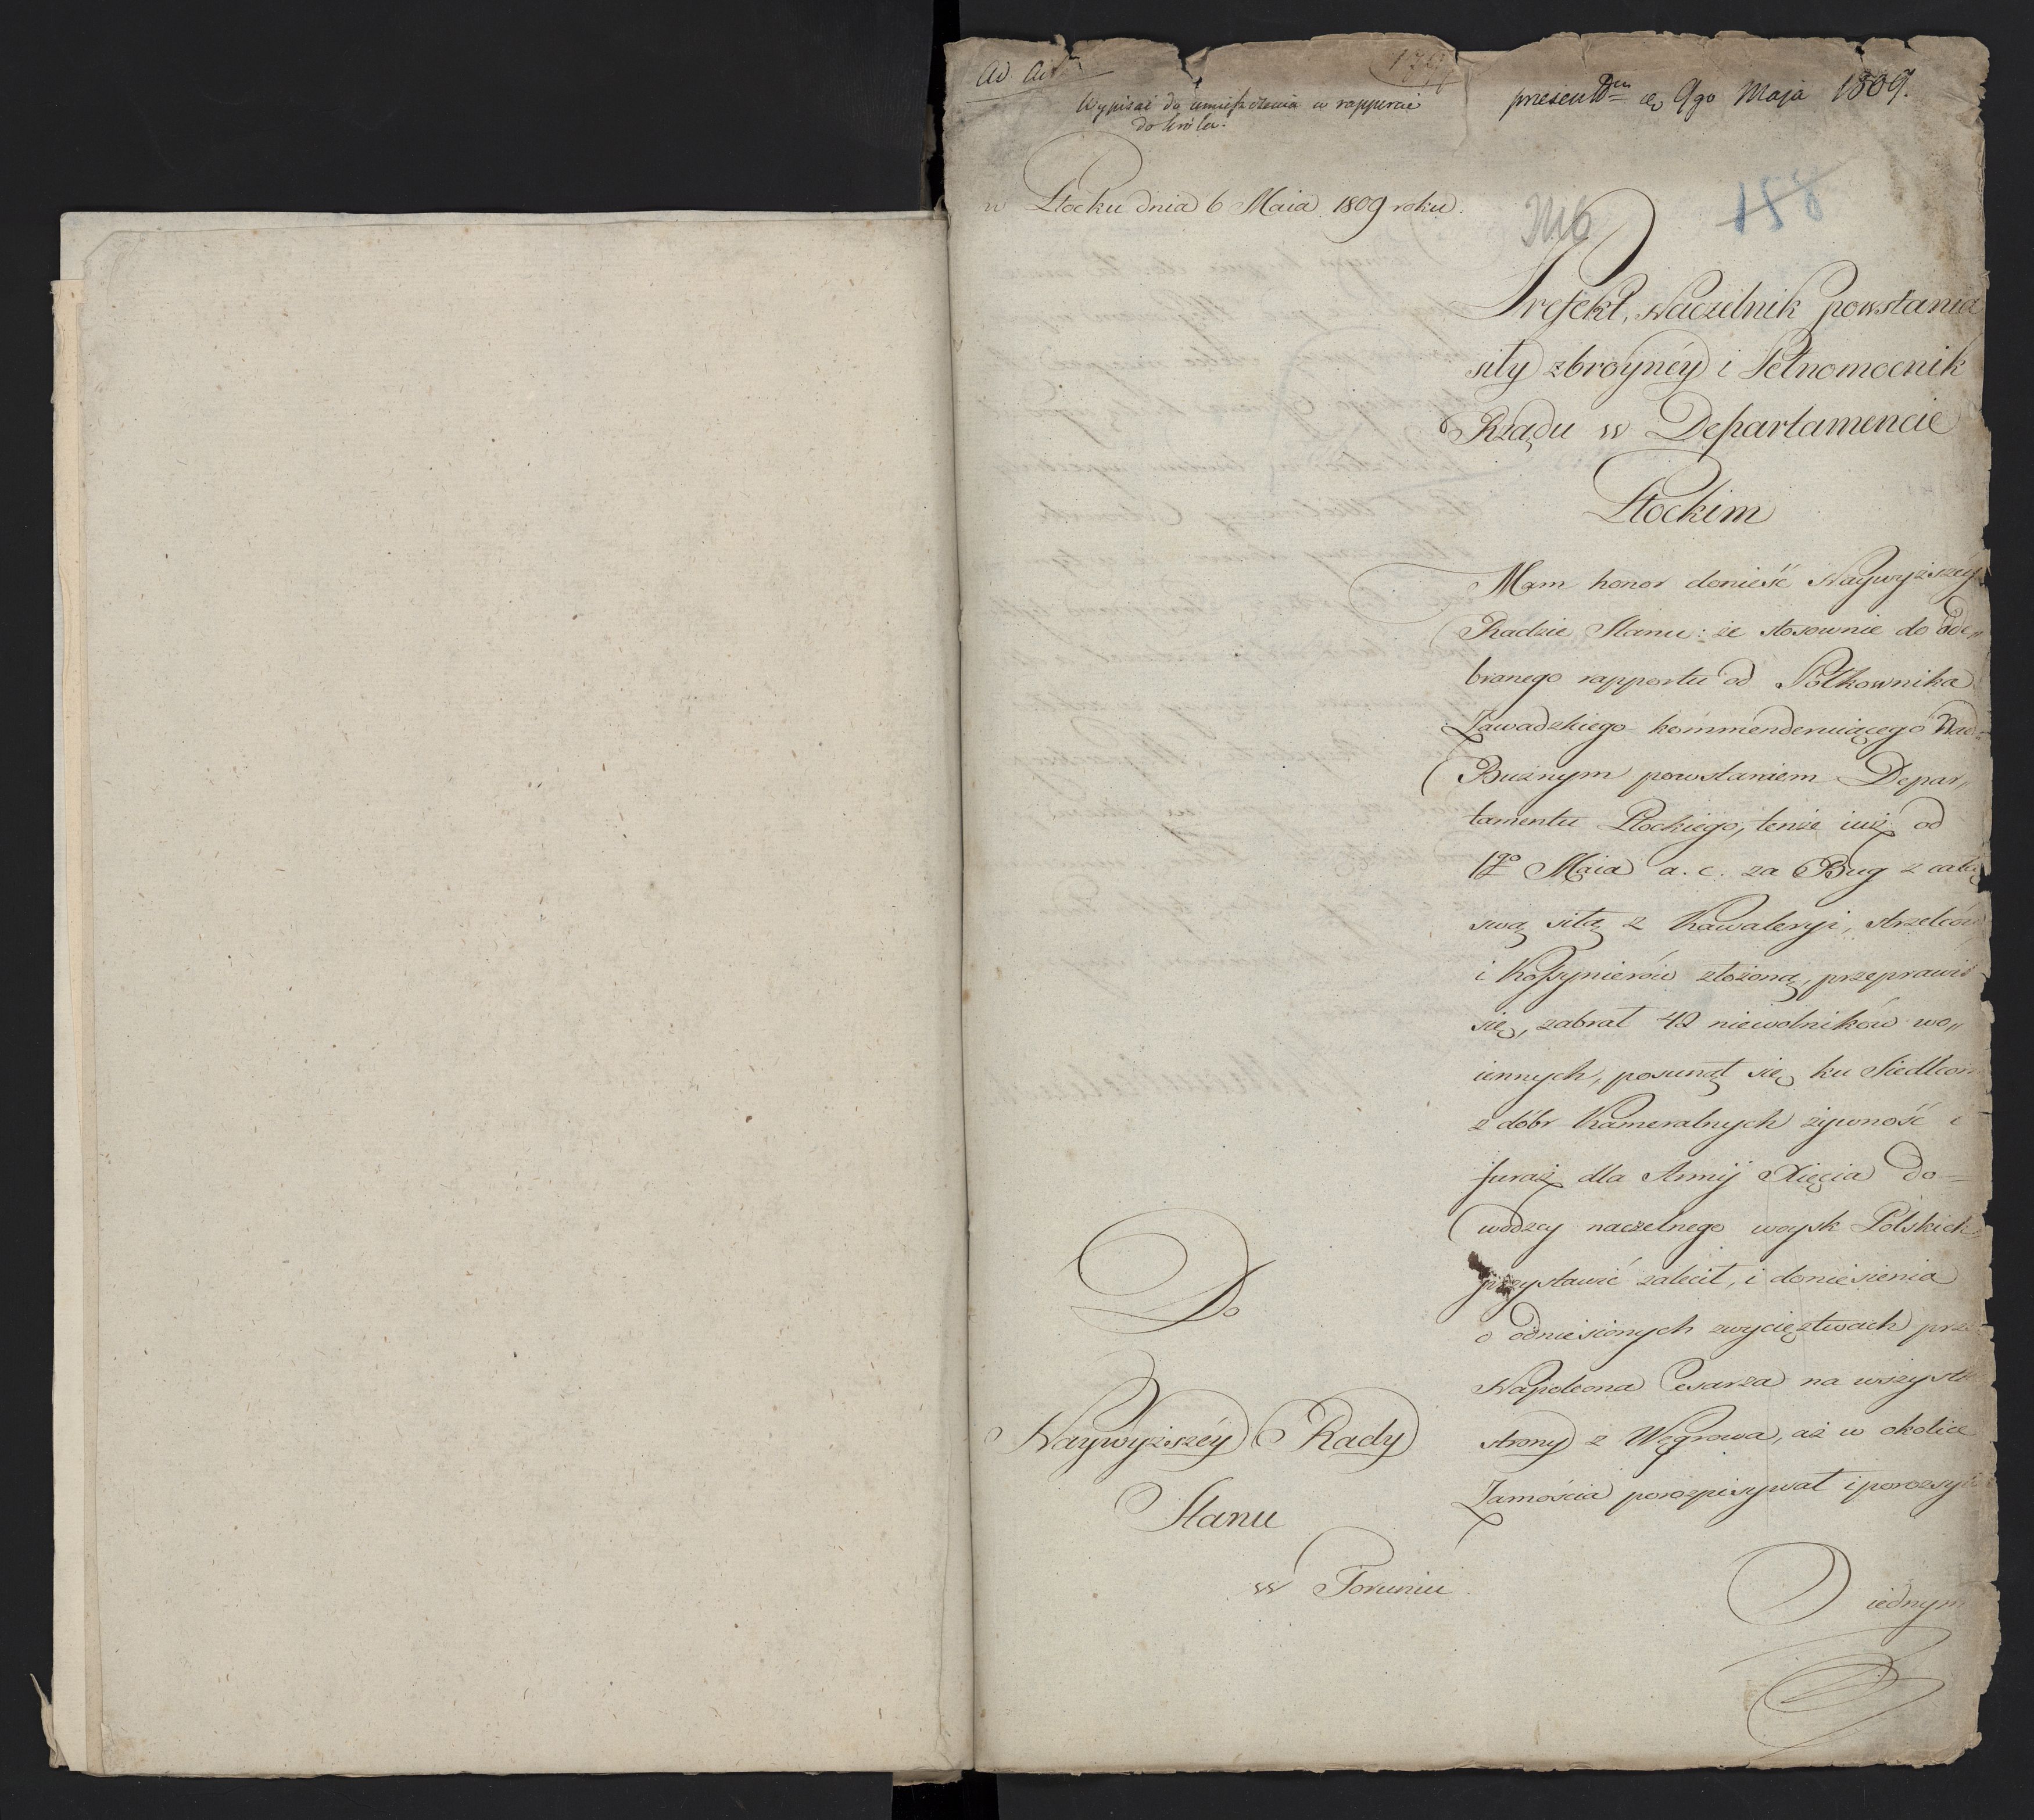 ad acta
Wypisać do umieszczenia w rapporcie
do króla.
presentum d. 9go Maja 1809.
158
w Płocku dnia 6 Maia 1809 roku.
Prefekt, Naczelnik powstania
siły zbroynéy i Pełnomocnik
Rządu w Departamencie
Płockim
Mam honor donieść Naywyższéy
Radzie Stanu: że stosownie do ode„
branego rapportu od Półkownika
Zawadzkiego kommenderuiącego Nad=
Bużnym powstaniem Depar„
tamentu Płockiego, tenże iuż od
1go Maia a. c. za Bug z całą
swą siłą z Kawaleryi, strzelców
i Kossynierów złożoną, przeprawił
się, zabrał 42 niewolników wo„
iennych, posunął się ku Siedlcom
z dóbr Kameralnych żywność i
furaż dla Armij Xięcia Do=
wodzcy naczelnego woysk Polskich
przystawić zalecił, i doniesienia
o odniesionych zwycięztwach prze
Napoleona Cesarza na wszystk
strony z Węgrowa, aż w okolice
Zamościa porozpisywał i porozsył
iednym
Do
Naywyższéy Rady
Stanu
w Toruniu.